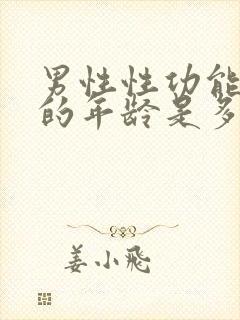 男性性功能
的年龄是多
姜小飛